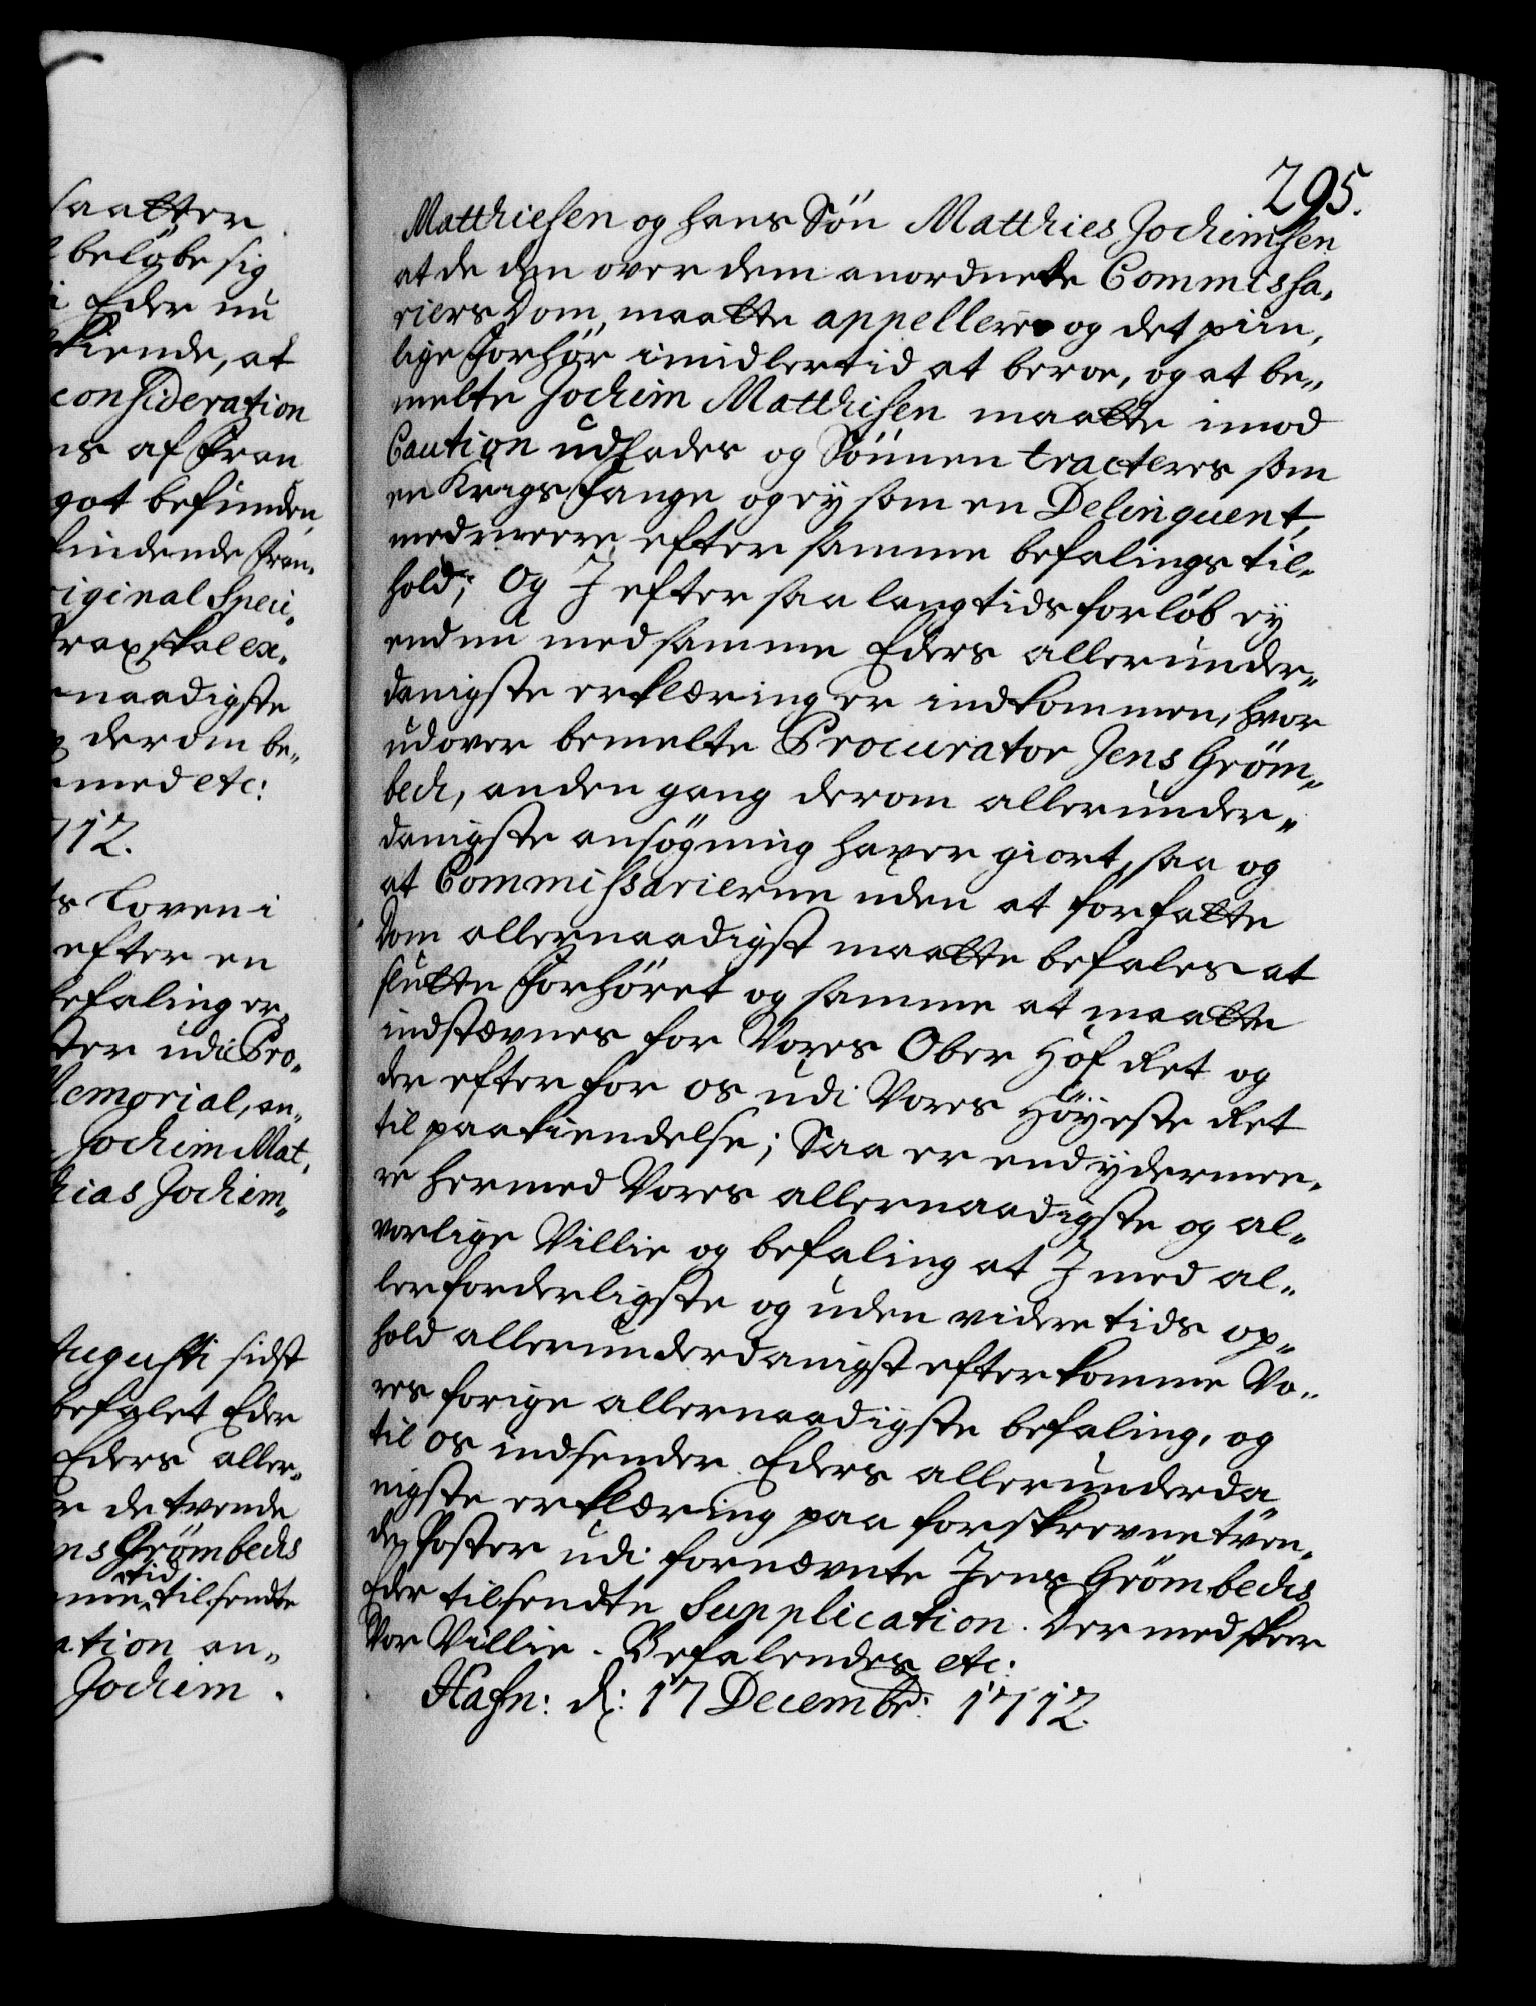 saatter
beløbe sig
i Eder nu
kiende, at
consideration
ns af Fran
got befunden
findende Fran„
riginal Speci„
strax skal ex„
naadigste
der om be„
med etc:
712.
ts Loven i
efter en
befaling er„
ster udi Pro„
Memorial, an„
Jochim Mat„
hias Jochim„
Augusti sidst
befalet Eder
Eders aller„
er de tvende
ns Grömbechs
tid
me tilsendte
ation an„
Jochim
295.
Matthiesen og hans Søn Matthies Jochimsen
at de den over dem anordnede Commissa„
riers Dom, maatte appellere og det piin„
lige Forhør imidlertid at beroe, og at be„
melte Jochim Matthisen maatte imod
Caution udlades og Sønnen tracteres som
en Krigs Fange og ey som en Delinquent,
med meere efter samme befalings til„
hold; Og I efter saa lang tids forløb ey
end nu med samme Eders allerunder„
danigste erklæring er indkommen, hvor
udover bemelte Procurator Jens Gröm„
bech, anden gang derom allerunder„
danigste ansøgning haver giort, saa og
at Commissarierne uden at forfatte
Dom allernaadigst maatte befales at
slutte Forhøret og samme at maatte
indstævnes for Vores Ober Hof Ret og
der efter for os udi Vores Høyeste Ret
til paakiendelse; Saa er end ydermee„
re hermed Vores allernaadigste og al„
vorlige Villie og befaling at I med al„
lerforderligste og uden videre tids op„
hold allerunderdanigst efterkomme Vo„
res forige allernaadigste befaling, og
til os indsender Eders allerunderda„
nigste erklæring paa forskrevne tven„
de Poster udi fornævnte Jens Grömbechs
Eder tilsendte Supplication. Dermed skeer
Vor Villie. Befalendes etc:
Hafn: d: 17 Decembr: 1712.